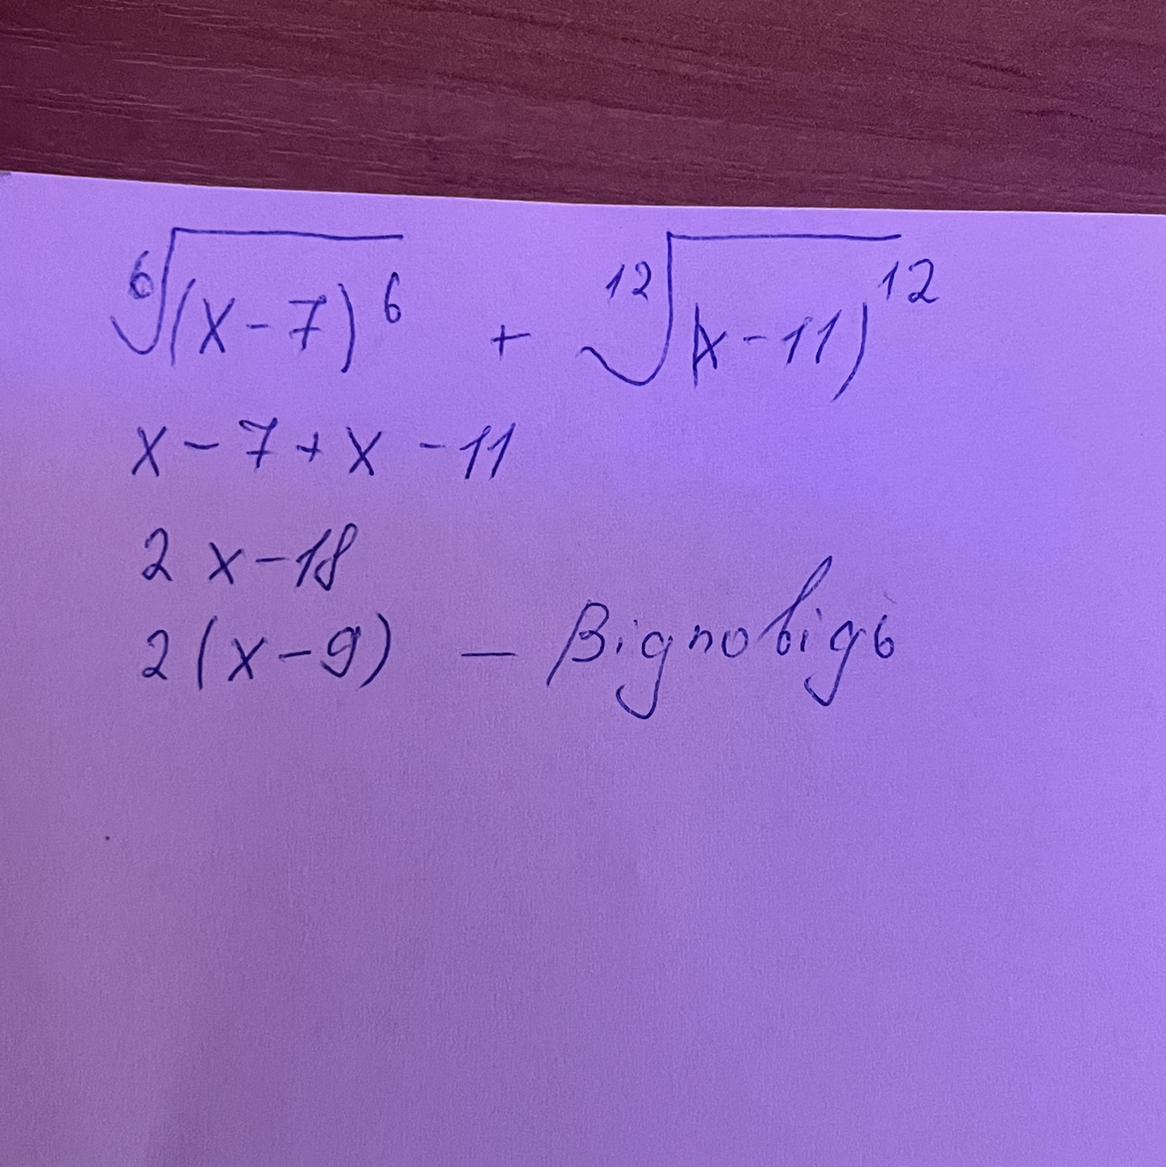 ⁶√(x-7)⁶ + ¹²√(x-11)¹²
x-7+x-11
2x-18
2(x-9) — Відповідь